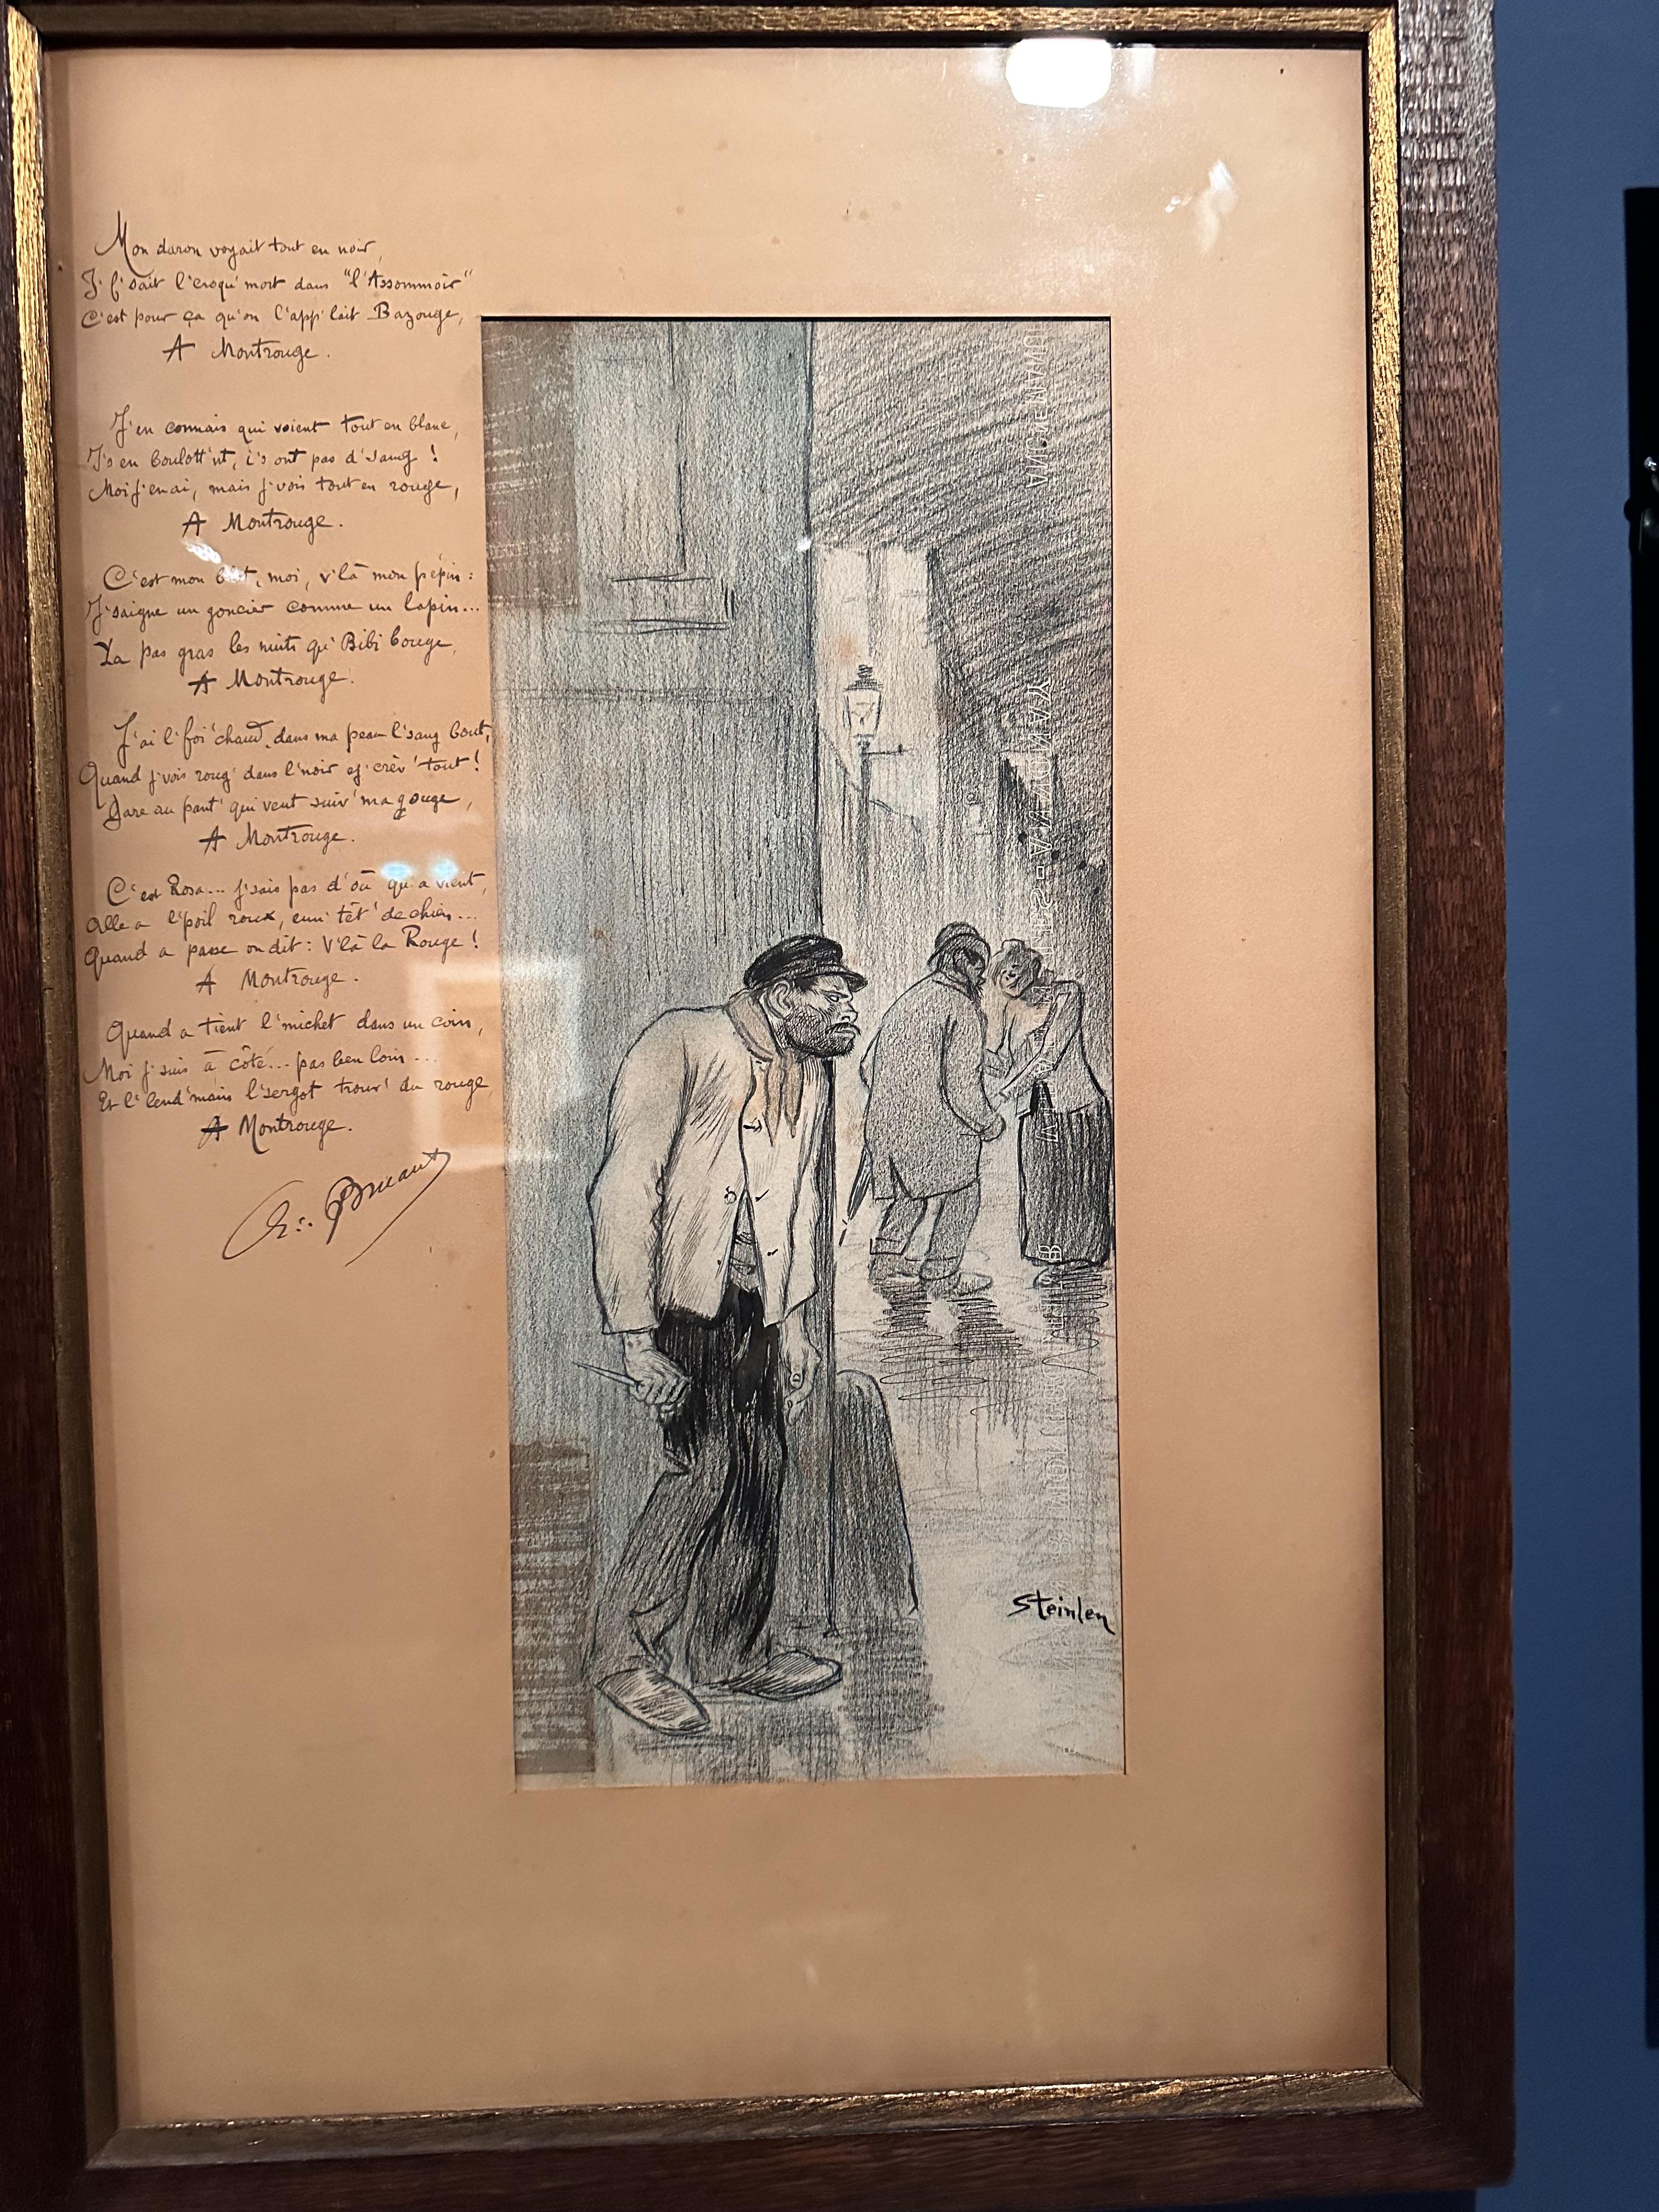 Mon daron voyait tout en noir,
I' f'sait l'croqu'mort dans "l'Assommoir"
C'est pour ça qu'on l'app'lait Bazouge,
A Montrouge.
J'en connais qui voient tout en blanc,
I's en boulott'nt, i's ont pas d'sang !
Moi j'en ai, mais j'vois tout en rouge,
A Montrouge.
C'est mon , moi, v'là mon pépin :
J'saigne un goncier comme un lapin...
Ya pas gras les nuits qu'Bibi bouge,
A Montrouge.
J'ai l'foi' chaud, dans ma peau l'sang bout,
Quand j'vois roug' dans l'noir ej' crèv' tout !
Gare au pant' qui veut suiv' ma gouge,
A Montrouge.
C'est Rosa... j'sais pas d'où qu'a vient,
Alle a l'poil roux, eun' têt' de chien...
Quand a passe on dit : V'là la Rouge !
A Montrouge.
Quand a tient l'michet dans un coin,
Moi j'suis à côté... pas ben loin...
Et l'lend'main l'sergot trouv' du rouge,
A Montrouge.
Bruant
Steinlen